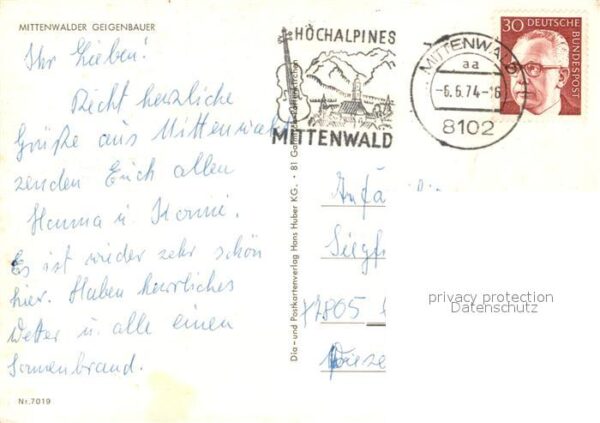 MITTENWALDER GEIGENBAUER
Ihr Lieben!
Recht herzliche
Grüße aus Mittenwald
senden Euch allen
Hanna u.
Es ist wieder sehr schön
hier. Haben herrliches
Wetter u. alle einen
Sonnenbrand.
Nr. 7019
Dia- und Postkartenverlag Hans Huber KG. · 81 Garmisch-Partenkirchen
HÖCHALPINES
MITTENWALD
MITTENWALD 1
aa
-6.6.74-16
8102
30 DEUTSCHE
BUNDESPOST
An Fa
Siegf
privacy protection
Datenschutz